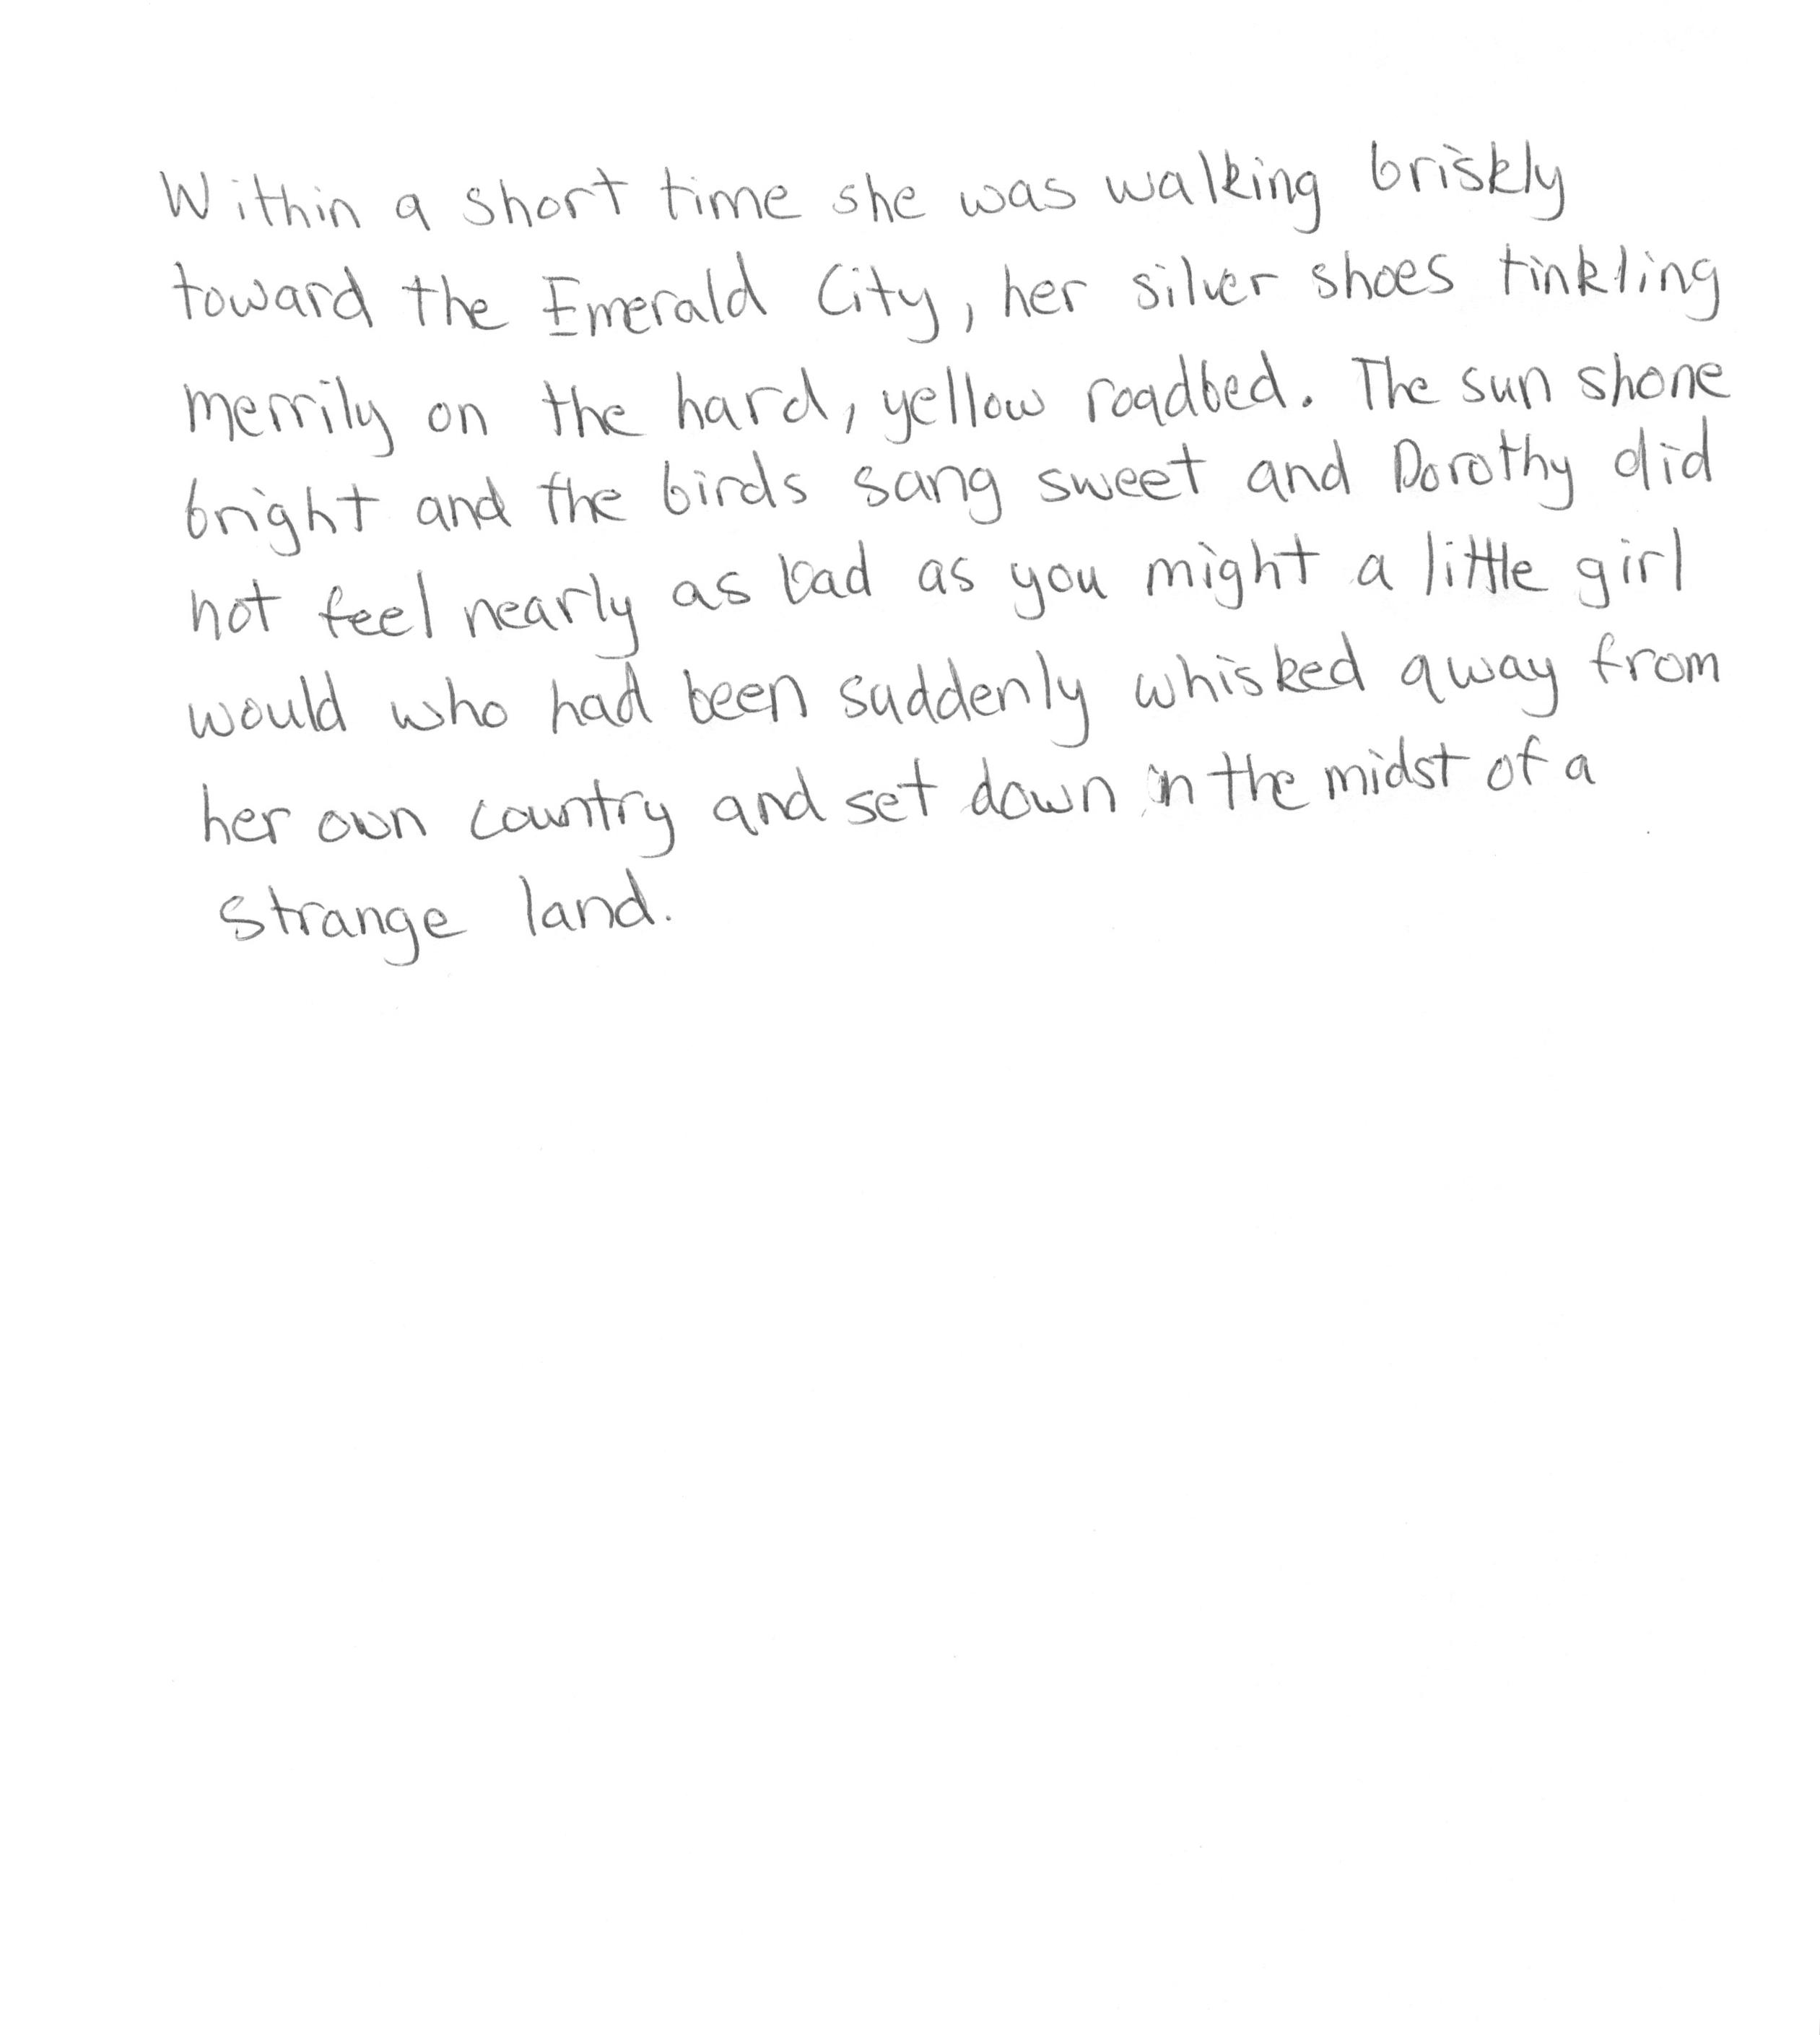 Within a short time she was walking briskly
toward the Emerald City, her silver shoes tinkling
merrily on the hard, yellow roadbed. The sun shone
bright and the birds sang sweet and Dorothy did
not feel nearly as bad as you might a little girl
would who had been suddenly whisked away from
her own country and set down in the midst of a
strange land.